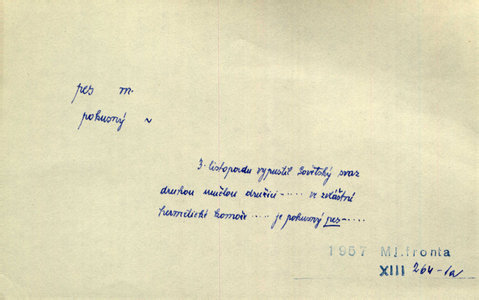 pes m.
pokusný ~
3. listopadu vypustil Sovětský svaz
druhou umělou družici ..... ve zvláštní
hermetické komoře ..... je pokusný pes .....
1957 Ml. fronta
XIII 264-1a